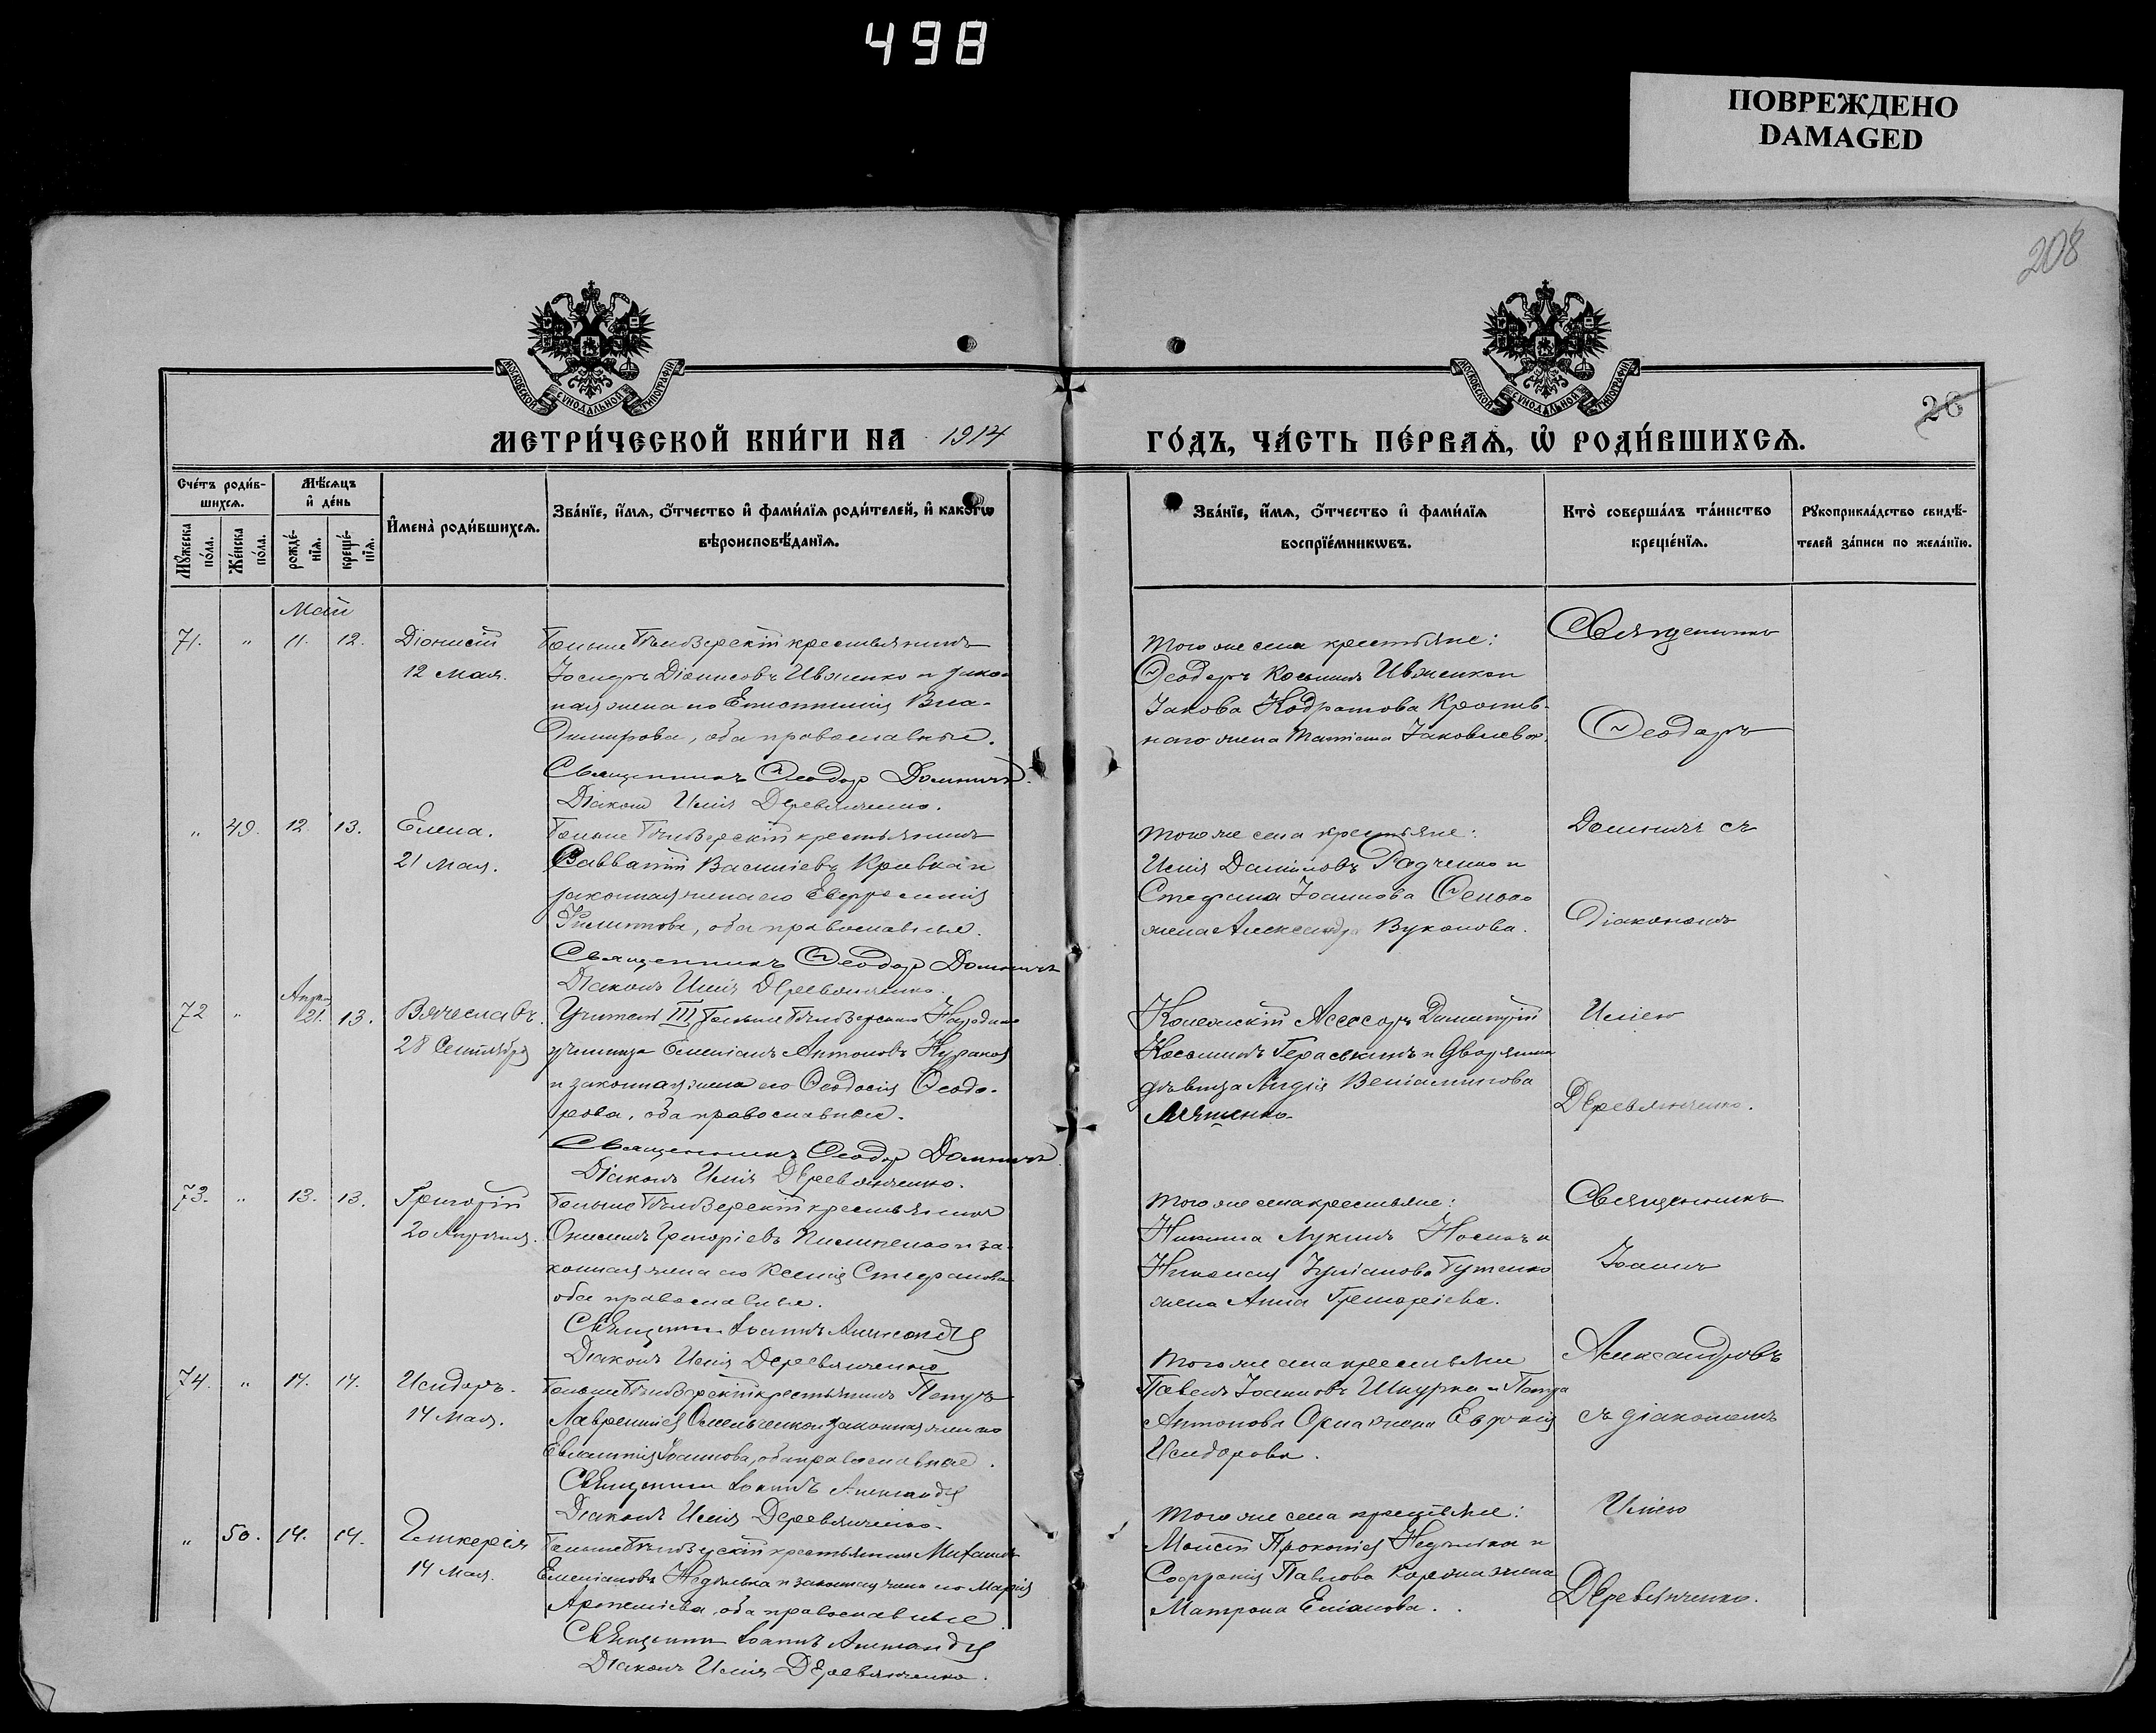 498
ПОВРЕЖДЕНО
DAMAGED
208
МОСКОВСКОЙ СУНОДАЛЬНОЙ ТИПОГРАФІИ
МОСКОВСКОЙ СУНОДАЛЬНОЙ ТИПОГРАФІИ
26
МЕТРИ́ЧЕСКОЙ КНИ́ГИ НА 1914
ГО́ДЪ, ЧА́СТЬ ПЕ́РВАѦ, Ѡ҆ РОДИ́ВШИХСѦ.
Сче́тъ роди́в-
шихсѧ.
Мꙋ́жеска
по́ла.
Же́нска
по́ла.
Мѣ́сѧцъ
и҆ де́нь
рожде́-
нїѧ.
креще́-
нїѧ.
И҆мена̀ роди́вшихсѧ.
Зва́нїе, и҆́мѧ, ѻ҆́тчество и҆ фами́лїѧ роди́телей, и҆ како́гѡ
вѣроисповѣ́данїѧ.
Зва́нїе, и҆́мѧ, ѻ҆́тчество и҆ фами́лїѧ
воспрїе́мникѡвъ.
Кто̀ соверша́лъ та́инство
креще́нїѧ.
Рꙋкоприкла́дство свидѣ́-
телей за́писи по жела́нїю.
Май
71. " 11. 12. Діонисій
12 Мая.
Больше Бѣлозерскій крестьянинъ
Іосифъ Діонисовъ Ивженко и закон
ная жена его Епистимія Вла-
димірова, оба православные.
Священникъ Ѳеодоръ Домничъ.
Діаконъ Илія Деревянченко.
Того же села крестьяне:
Ѳеодоръ Косминъ Ивженко и
Іакова Кодратова Кропив-
наго жена Татіана Іаковлева.
Священникъ
Ѳеодоръ
" 49. 12. 13. Елена.
21 Мая.
Больше Бѣлозерскій крестьянинъ
Савватій Василіевъ Кривка и
законная жена его Евфимія
Филиппова, оба православные.
Священникъ Ѳеодоръ Домничъ
Діаконъ Илія Деревянченко.
Того же села крестьяне:
Илія Даниловъ Радченко и
Стефана Іоаннова
жена Александра Вуколова.
Домничъ съ
Діакономъ
72 " Апр. 21. 13. Вячеславъ.
28 Сентября
Учитель III Больше Бѣлозерскаго Народнаго
училища Емеліанъ Антоновъ
и законная жена его Ѳеодосія Ѳеодо-
рова, оба православные.
Священникъ Ѳеодоръ Домничъ
Діаконъ Илія Деревянченко.
Колежскій Ассесоръ Димитрій
Косминъ Гераськинъ и Дворянка
дѣвица Лидія Веніаминова
Ляшенко
Иліею
Деревянченко.
73. " 13. 13. Григорій
20 Апрѣля.
Больше Бѣлозерскій крестьянинъ
Онисимъ Григоріевъ и за-
конная жена его Ксенія Стефанова
оба православные.
Священникъ Іоаннъ Александровъ
Діаконъ Илія Деревянченко
Того же села крестьяне:
Никита Лукинъ Носикъ и
Николая Іуліанова Бутенко
жена Анна Григоріева.
Священникъ
Іоаннъ
74. " 14. 14. Исидоръ.
14 Мая.
Больше Бѣлозерскій крестьянинъ Петръ
Лаврентіевъ Омельченко и законная жена его
Евлампія Іоаннова, оба православные.
Священникъ Іоаннъ Александровъ
Діаконъ Илія Деревянченко.
Того же села крестьяне
Павелъ Іоанновъ Шкурка и Петра
Антонова жена Евфимія
Исидорова.
Александровъ
съ діакономъ
" 50. 14. 14. Гликерія
14 Мая.
Больше Бѣлозерскій крестьянинъ Михаилъ
Емеліановъ Недѣлька и законная жена его Марія
Артеміева, оба православные
Священникъ Іоаннъ Александровъ
Діаконъ Илія Деревянченко.
Того же села крестьяне:
Моисей Прокопіевъ Недѣлька и
Софронія Павлова жена
Матрона Еліанова.
Иліею
Деревянченко.